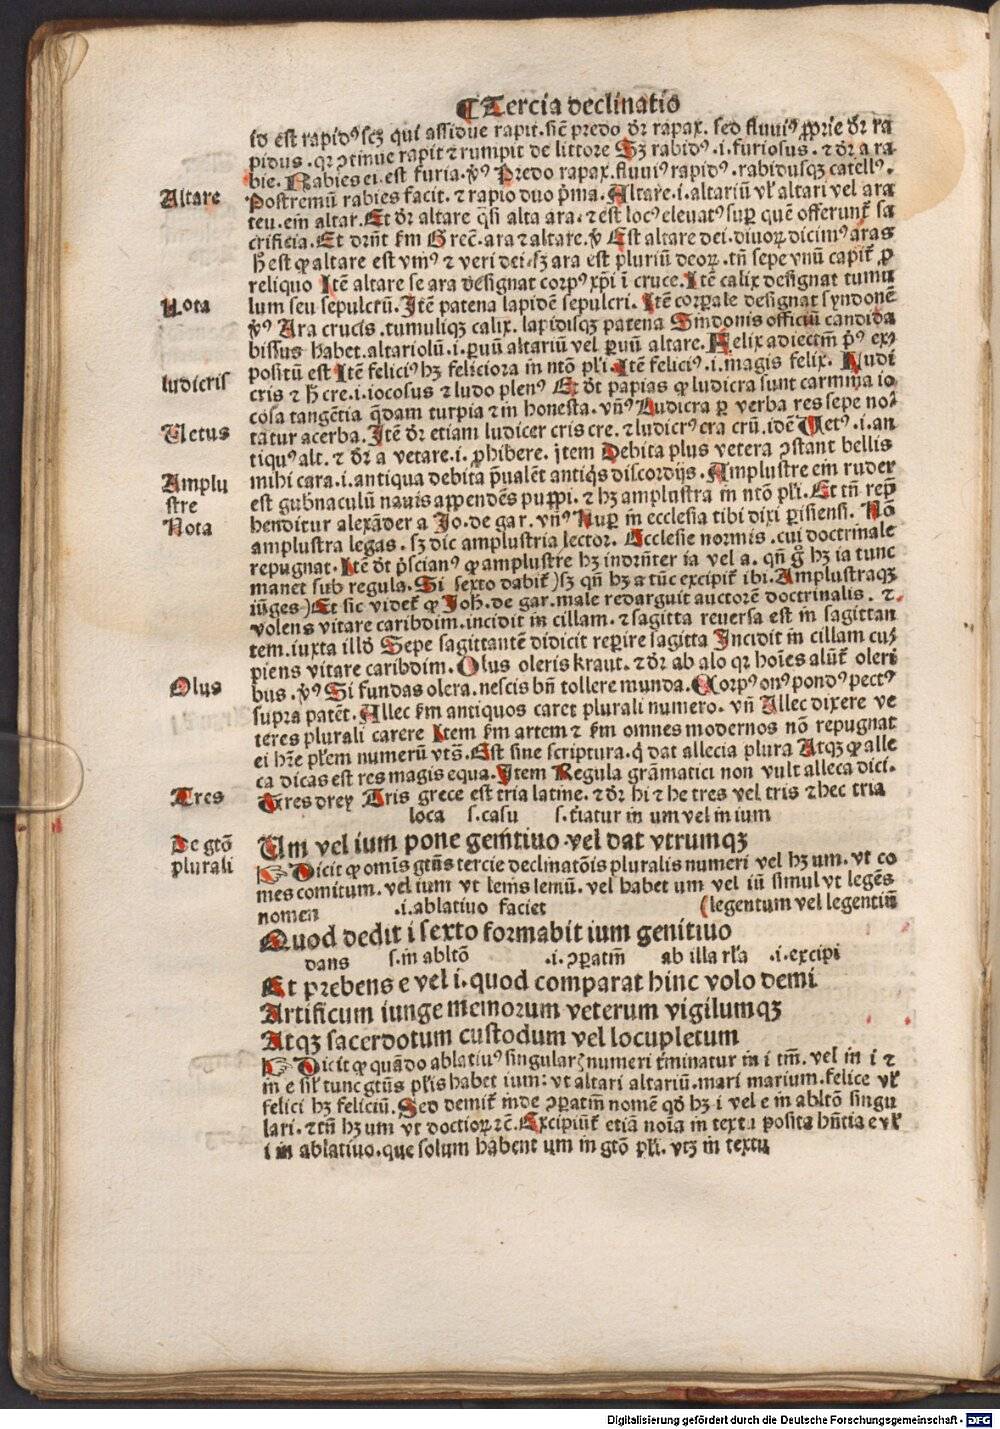 ¶ Tercia declinatio
id est rapidꝰ scꝫ qui assidue rapit. sic̄ predo dr̄ rapax. sed fluuiꝰ ꝓprie dr̄ ra
pidus. qr ꝯtinue rapit ⁊ rumpit de littore Sꝫ rabidꝰ .i. furiosus. ⁊ dr̄ a ra
bie. Rabies ei. est furia. v̓ꝰ Predo rapax. fluuiꝰ rapidꝰ. rabidusqꝫ catellꝰ.
Altare
Postremū rabies facit. ⁊ rapio duo p̄ma. Altare .i. altariū vl̓ altari vel ara
teu. em̄ altar. Et dr̄ altare q̄si alta ara. ⁊ est locꝰ eleuatꝰ suꝑ quē offerunt̓ sa
crificia. Et drn̄t km̄ Grec̄. ara ⁊ altare. v̓ Est altare dei. diuoꝝ dicimꝰ aras
h̄ est ꝙ altare est vniꝰ ⁊ veri dei. sꝫ ara est pluriū deoꝝ. tn̄ sepe vnū capit̓ ꝓ
reliquo Itē altare se ara designat corpꝰ xp̄i ī cruce. Itē calix designat tumu
Nota
lum seu sepulcrū. Itē patena lapidē sepulcri. Itē corꝑale designat syndonē
v̓ꝰ Ara crucis. tumuliqꝫ calix. lapidisqꝫ patena Sindonis officiū candida
bissus habet. altariolū .i. ꝑuū altariū vel ꝑuū altare. Felix adiectm̄ p̄ꝰ exꝰ
positū est Itē feliciꝰ hꝫ feliciora in ntō pl̓i. Itē feliciꝰ .i. magis felix. Ludi
ludicris
cris ⁊ h̄ cre .i. iocosus ⁊ ludo plenꝰ Et dt̄ papias ꝙ ludicra sunt carmina io
cosa tangētia q̄dam turpia ⁊ in honesta. vn̄ꝰ Ludicra ꝑ verba res sepe noꝰ
Uetus
tatur acerba. Itē dr̄ etiam ludicer cris cre. ⁊ ludicrꝰ cra crū. idē Uetꝰ .i. an
tiquꝰ alt. ⁊ dr̄ a vetare .i. ꝓhibere. Item Debita plus vetera ꝯstant bellis
mihi cara .i. antiqua debita p̄ualēt antiq̄s discordijs. Amplustre em̄ ruder
Amplu
stre
est gub̄naculū nauis appendēs puppi. ⁊ hꝫ amplustra in ntō pl̓i. Et tn̄ rep̄
Nota
henditur alexāder a Jo. de gar. vn̄ꝰ Nuꝑ in ecclesia tibi dixi ꝑisiensi. Nō
amplustra legas. sꝫ dic amplustria lector. Ecclesie normis. cui doctrinale
repugnat. Itē dt̄ p̄scianꝰ ꝙ amplustre hꝫ indrn̄ter ia vel a. qn̄ g̊ hꝫ ia tunc
manet sub regula. Si sexto dabit̓) sꝫ qn̄ hꝫ a tūc excipit̓ ibi. Amplustraqꝫ
iūges) Et sic videt̓ ꝙ Joh̄. de gar. male redarguit auctorē doctrinalis. ⁊
volens vitare caribdim. incidit in cillam. ⁊ sagitta reuersa est in sagittan
tem. iuxta illō Sepe sagittantē didicit reꝑire sagitta Incidit in cillam cuꝰ
piens vitare caribdim. Olus oleris kraut. ⁊ dr̄ ab alo qr hoīes alūt̓ oleri
Olus
bus. v̓ꝰ Si fundas olera. nescis bn̄ tollere munda. Corpꝰ onꝰ pondꝰ pectꝰ
supra patēt. Allec km̄ antiquos caret plurali numero. vn̄ Allec dixere ve
teres plurali carere Item km̄ artem ⁊ km̄ omnes modernos nō repugnat
ei hr̄e pl̓em numerū vts̄. Est sine scriptura. q̇ dat allecia plura Atqꝫ ꝙ alle
ca dicas est res magis equa. Item Regula grāmatici non vult alleca dici.
Tres
Tres drey Tris grece est tria latine. ⁊ dr̄ hi ⁊ he tres vel tris ⁊ hec tria
loca s. casu s. t̄iatur in um vel in ium
De gtō
plurali
Um vel ium pone gemitiuo. vel dat vtrumqꝫ
☞ Dicit ꝙ omīs gtn̄s tercie declinatōis pluralis numeri vel hꝫ um. vt co
mes comitum. vel ium vt lem̄s lemū. vel habet um vel iū simul vt legēs
nomen .i. ablatiuo faciet (legentum vel legentiū
Quod dedit i sexto formabit ium genitiuo
dans s. in abltō .i. ꝯꝑatm̄ ab illa rl̓a .i. excipi
Et prebens e vel i. quod comparat hinc volo demi
Artificum iunge memorum veterum vigilumqꝫ
Atqꝫ sacerdotum custodum vel locupletum
☞ Dicit ꝙ quādo ablatiuꝰ singularꝭ numeri t̓minatur in i tm̄. vel in i ⁊
in e sil̓ tunc gtn̄s pl̓is habet ium: vt altari altariū. mari marium. felice vl̓
felici hꝫ feliciū. Sed demit̓ inde ꝯꝑatm̄ nomē qd̓ hꝫ i vel e in abltō singu
lari. ⁊ tn̄ hꝫ um vt doctioꝝ ⁊c̄. Excipiūt̓ etiā noīa in textu posita hn̄tia e vl̓
i in ablatiuo. que solum habent um in gtō pl̓i. vtꝫ in textu
Digitalisierung gefördert durch die Deutsche Forschungsgemeinschaft - DFG